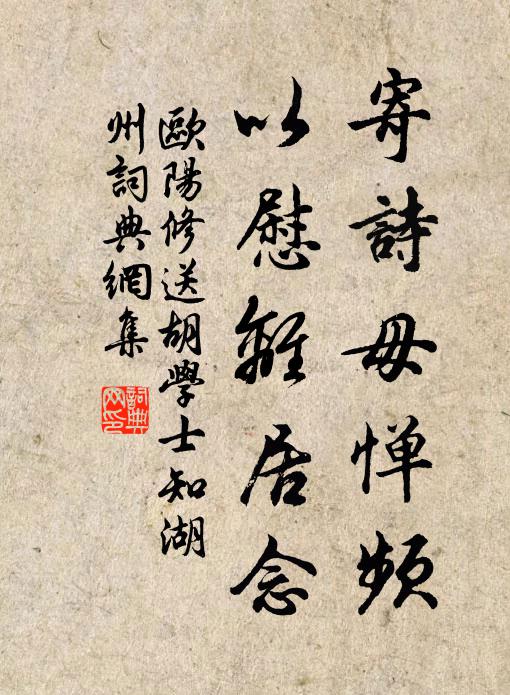 寄詩毋憚頻
以慰離居念
歐陽修送胡學士知湖
州詞典網集
詞典
网印